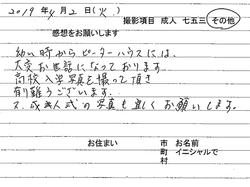 2019年4月2日(火)
撮影項目 成人 七五三 その他
感想をお願いします
幼い時からピーターハウスには、
大変お世話になっております。
高校入学写真を撮って頂き
有難うございます。
又、成人式の写真も宜しくお願いします。
お住まい 市 お名前
町 イニシャルで
村